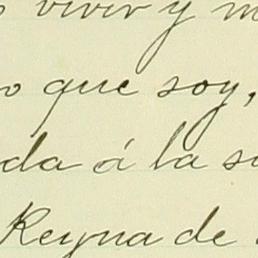 vivir y
que soy,
da á la
Reyna de